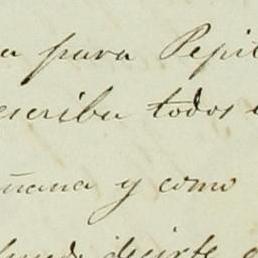 a para Pepi
escriba todos
ñana y como
decirte